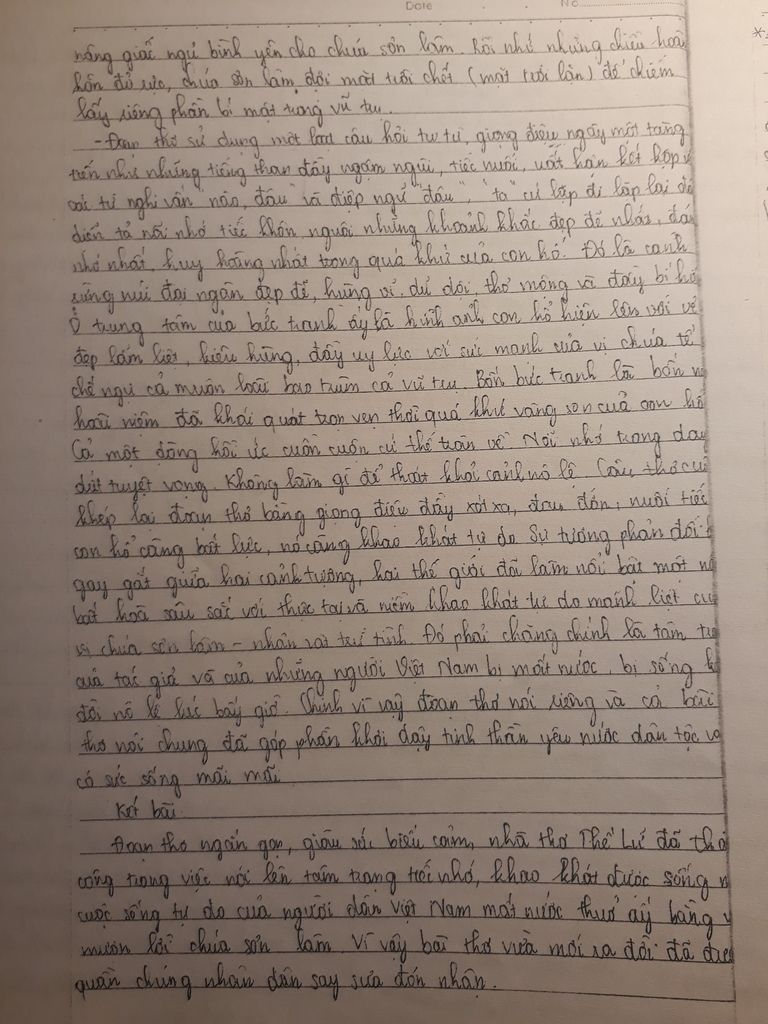 Date No
nắng giấc ngủ bình yên cho chúa sơn lâm. Rồi nhớ những chiều hoàng
hôn đỏ rực, chúa sơn lâm đợi mặt trời chết (mặt trời lặn) để chiếm
lấy riêng phần bí mật trong vũ trụ.
- Đoạn thơ sử dụng một loạt câu hỏi tu từ, giọng điệu ngày một tăng
tiến như những tiếng than đầy ngậm ngùi, tiếc nuối, uất hận kết hợp
các từ nghi vấn nào, đâu" và điệp ngữ "đâu", "ta" cứ lặp đi lặp lại để
diễn tả nỗi nhớ tiếc khôn nguôi những khoảnh khắc đẹp đẽ nhất, đáng
nhớ nhất, huy hoàng nhất trong quá khứ của con hổ. Đó là cảnh
rừng núi đại ngàn đẹp đẽ, hùng vĩ, dữ dội, thơ mộng và đầy bí hiểm
Ở trung tâm của bức tranh ấy là hình ảnh con hổ hiện lên với vẻ
đẹp lẫm liệt, kiêu hùng, đầy uy lực với sức mạnh của vị chúa tể
chế ngự cả muôn loài bao trùm cả vũ trụ. Bốn bức tranh là bốn
hoài niệm đã khái quát trọn vẹn thời quá khứ vàng son của con hổ
Cả một dòng hồi ức cuồn cuộn cứ thế tràn về. Nỗi nhớ trong day
dứt tuyệt vọng. Không làm gì để thoát khỏi cảnh nô lệ. Câu thơ cuối
khép lại đoạn thơ bằng giọng điệu đầy xót xa, đau đớn, nuối tiếc
con hổ càng bất lực, nó càng khao khát tự do. Sự tương phản đối
gay gắt giữa hai cảnh tượng, hai thế giới đã làm nổi bật một
bất hoà sâu sắc với thực tại và niềm khao khát tự do mãnh liệt của
vị chúa sơn lâm - nhân vật trữ tình. Đó phải chăng chính là tâm trạng
của tác giả và của những người Việt Nam bị mất nước, bị sống
đời nô lệ lúc bấy giờ. Chính vì vậy đoạn thơ nói riêng và cả bài
thơ nói chung đã góp phần khơi dậy tinh thần yêu nước dân tộc và
có sức sống mãi mãi
Kết bài
Đoạn thơ ngắn gọn, giàu sức biểu cảm, nhà thơ Thế Lữ đã thành
công trong việc nói lên tâm trạng tiếc nhớ, khao khát được sống
cuộc sống tự do của người dân Việt Nam mất nước thuở ấy bằng
mượn lời chúa sơn lâm. Vì vậy bài thơ vừa mới ra đời đã được
quần chúng nhân dân say sưa đón nhận.